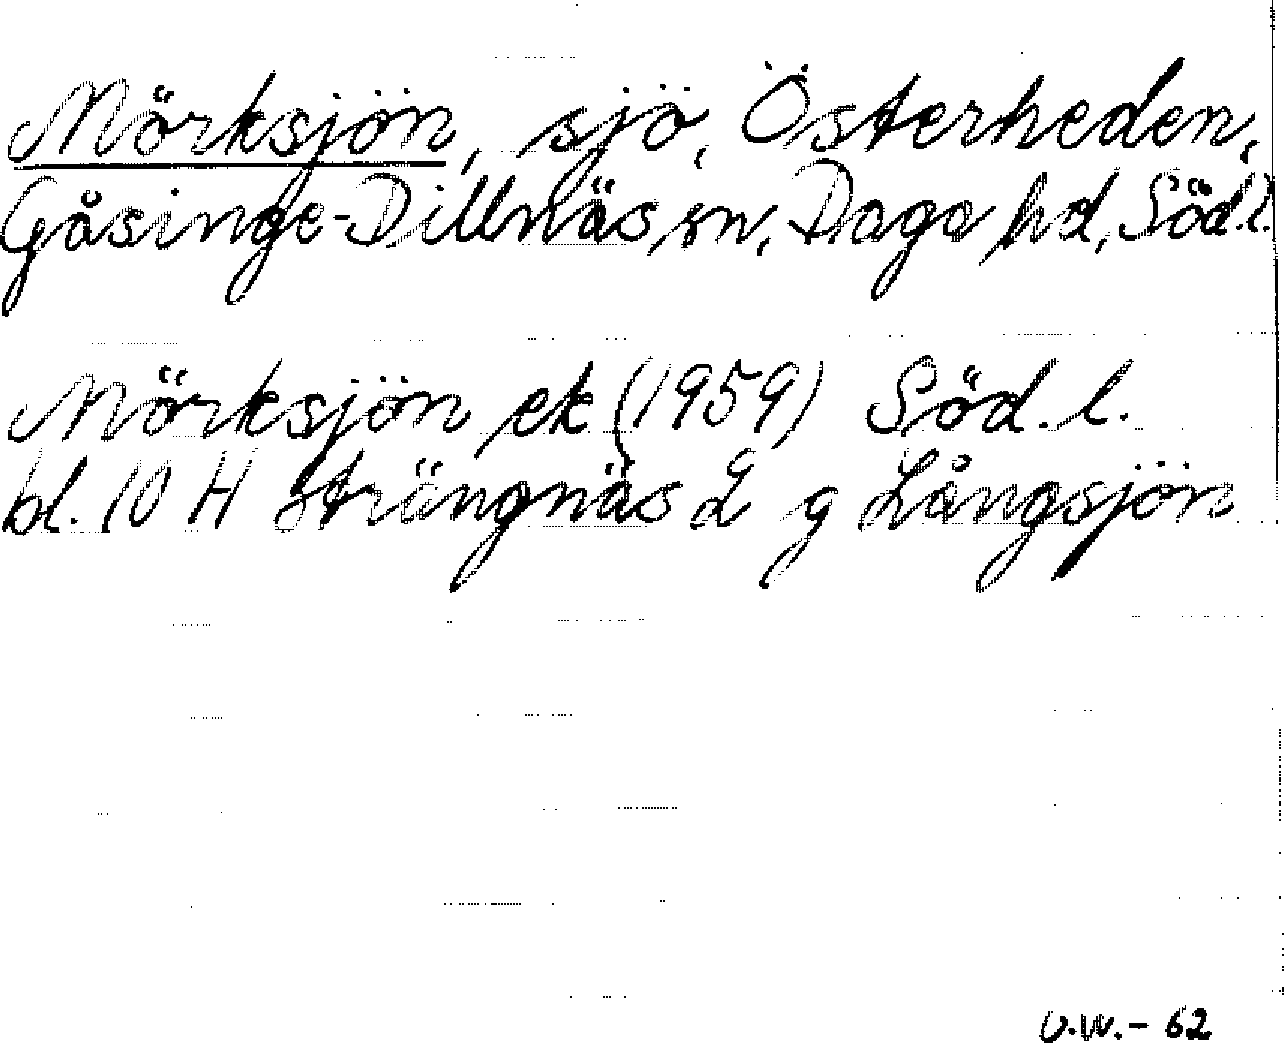 Mörksjön, sjö, Österheden,
Gåsinge-Dillnäs sn, Daga hd, Söd.l.
Mörksjön ek (1959) Söd. l.
bl. 10 H Strängnäs g Långsjön
U.W.- 62